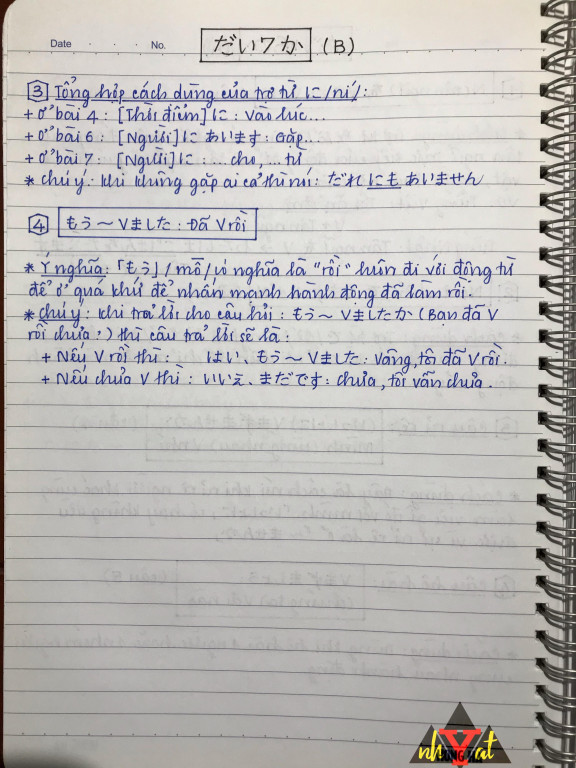 Date . . . No.
だい7か (B)
3 Tổng hợp cách dùng của trợ từ に/ní/:
+ Ở bài 4: [Thời điểm] に: Vào lúc...
+ Ở bài 6 [Người] に あいます: Gặp...
+ Ở bài 7 [Người] に: ... cho, từ
* Chú ý: Khi không gặp ai cả thì nói: だれ にも あいません
4 もう〜Vました: Đã V rồi
* Ý nghĩa: 「もう」/mô/ vị nghĩa là "rồi" luôn đi với động từ
để ở quá khứ để nhấn mạnh hành động đã làm rồi.
* chú ý: khi trả lời cho câu hỏi: もう〜Vましたか (Bạn đã V
rồi chưa?) thì câu trả lời sẽ là:
+ Nếu V rồi thì: はい、もう〜Vました: Vâng, tôi đã V rồi.
+ Nếu chưa V thì: いいえ、まだです: chưa, tôi vẫn chưa.
nh V at